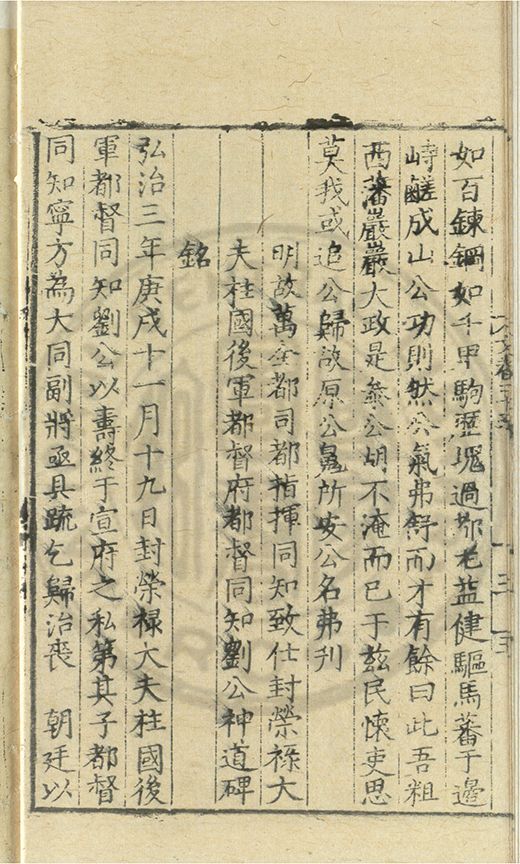 如百鍊鋼如千甲駒歷塊過都老益健驅馬蕃于邊
峙鹺成山公功則然公氣弗舒而才有餘曰此吾粗
西藩巖巖大政是叅公胡不淹而已于兹民懷吏思
莫我或追公歸故原公鬼所安公名弗刊
明故萬全都司都指揮同知致仕封榮祿大
夫柱國後軍都督府都督同知劉公神道碑
銘
弘治三年庚戌十一月十九日封榮祿大夫柱國後
軍都督同知劉公以壽終于宣府之私第其子都督
同知寧方為大同副將亟具疏乞歸治喪 朝廷以